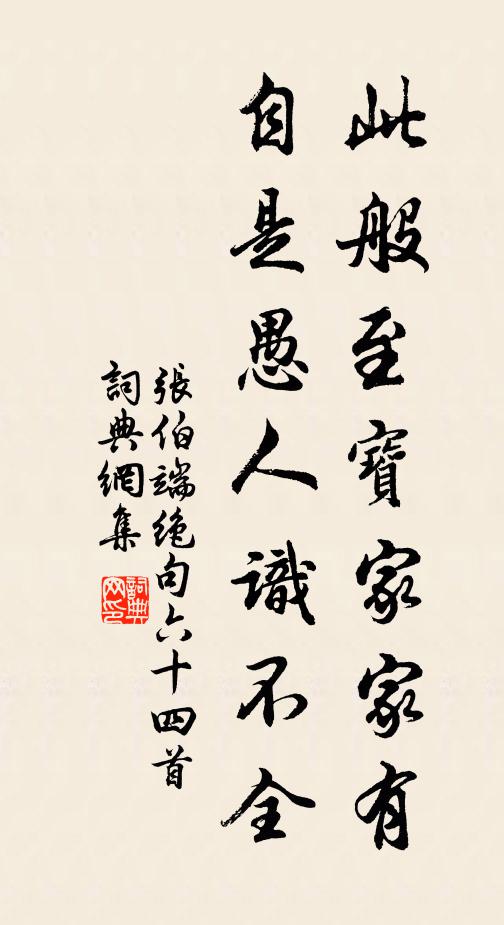 此般至寶家家有
自是愚人識不全
張伯端絕句六十四首
詞典網集
詞典网印